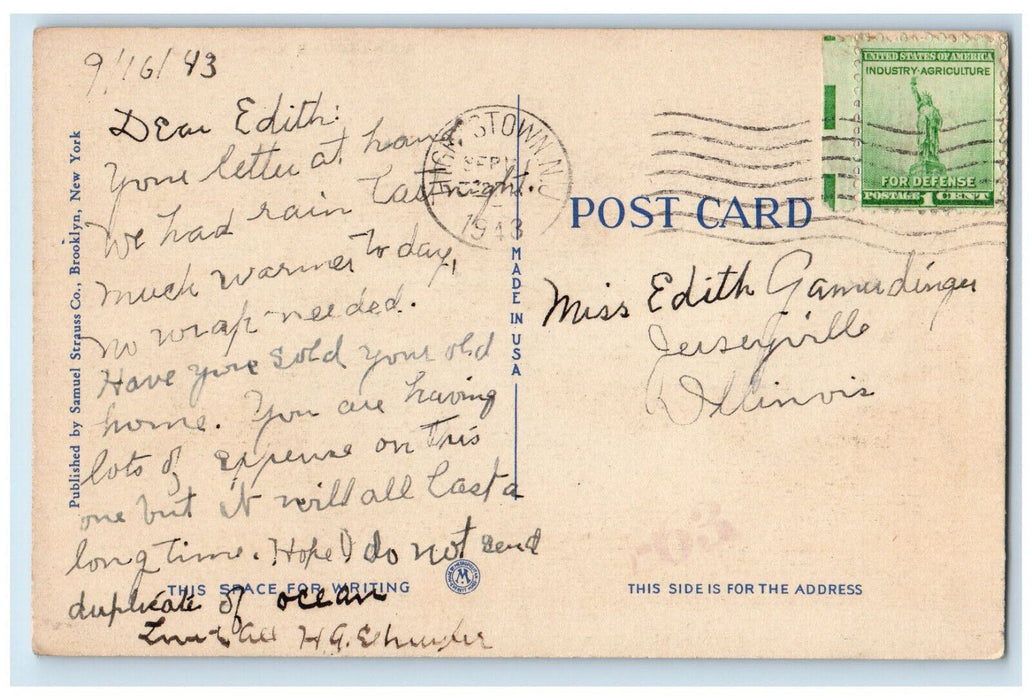 9/16/43
Dear Edith:
Your letter at hand.
We had rain last night.
Much warmer to day,
no wrap needed.
Have you sold your old
home. You are having
lots of expense on this
one but it will all last a
long time. Hope I do not send
duplicate of ocean
Love to all H.G.
Published by Samuel Strauss Co., Brooklyn, New York
THIS SPACE FOR WRITING
MADE IN USA
HIGHTSTOWN, N.J.
SEP
1943
UNITED STATES OF AMERICA
INDUSTRY·AGRICULTURE
FOR DEFENSE
POSTAGE 1 CENT
POST CARD
Miss Edith Gamerdinger
Jerseyville
Illinois
THIS SIDE IS FOR THE ADDRESS